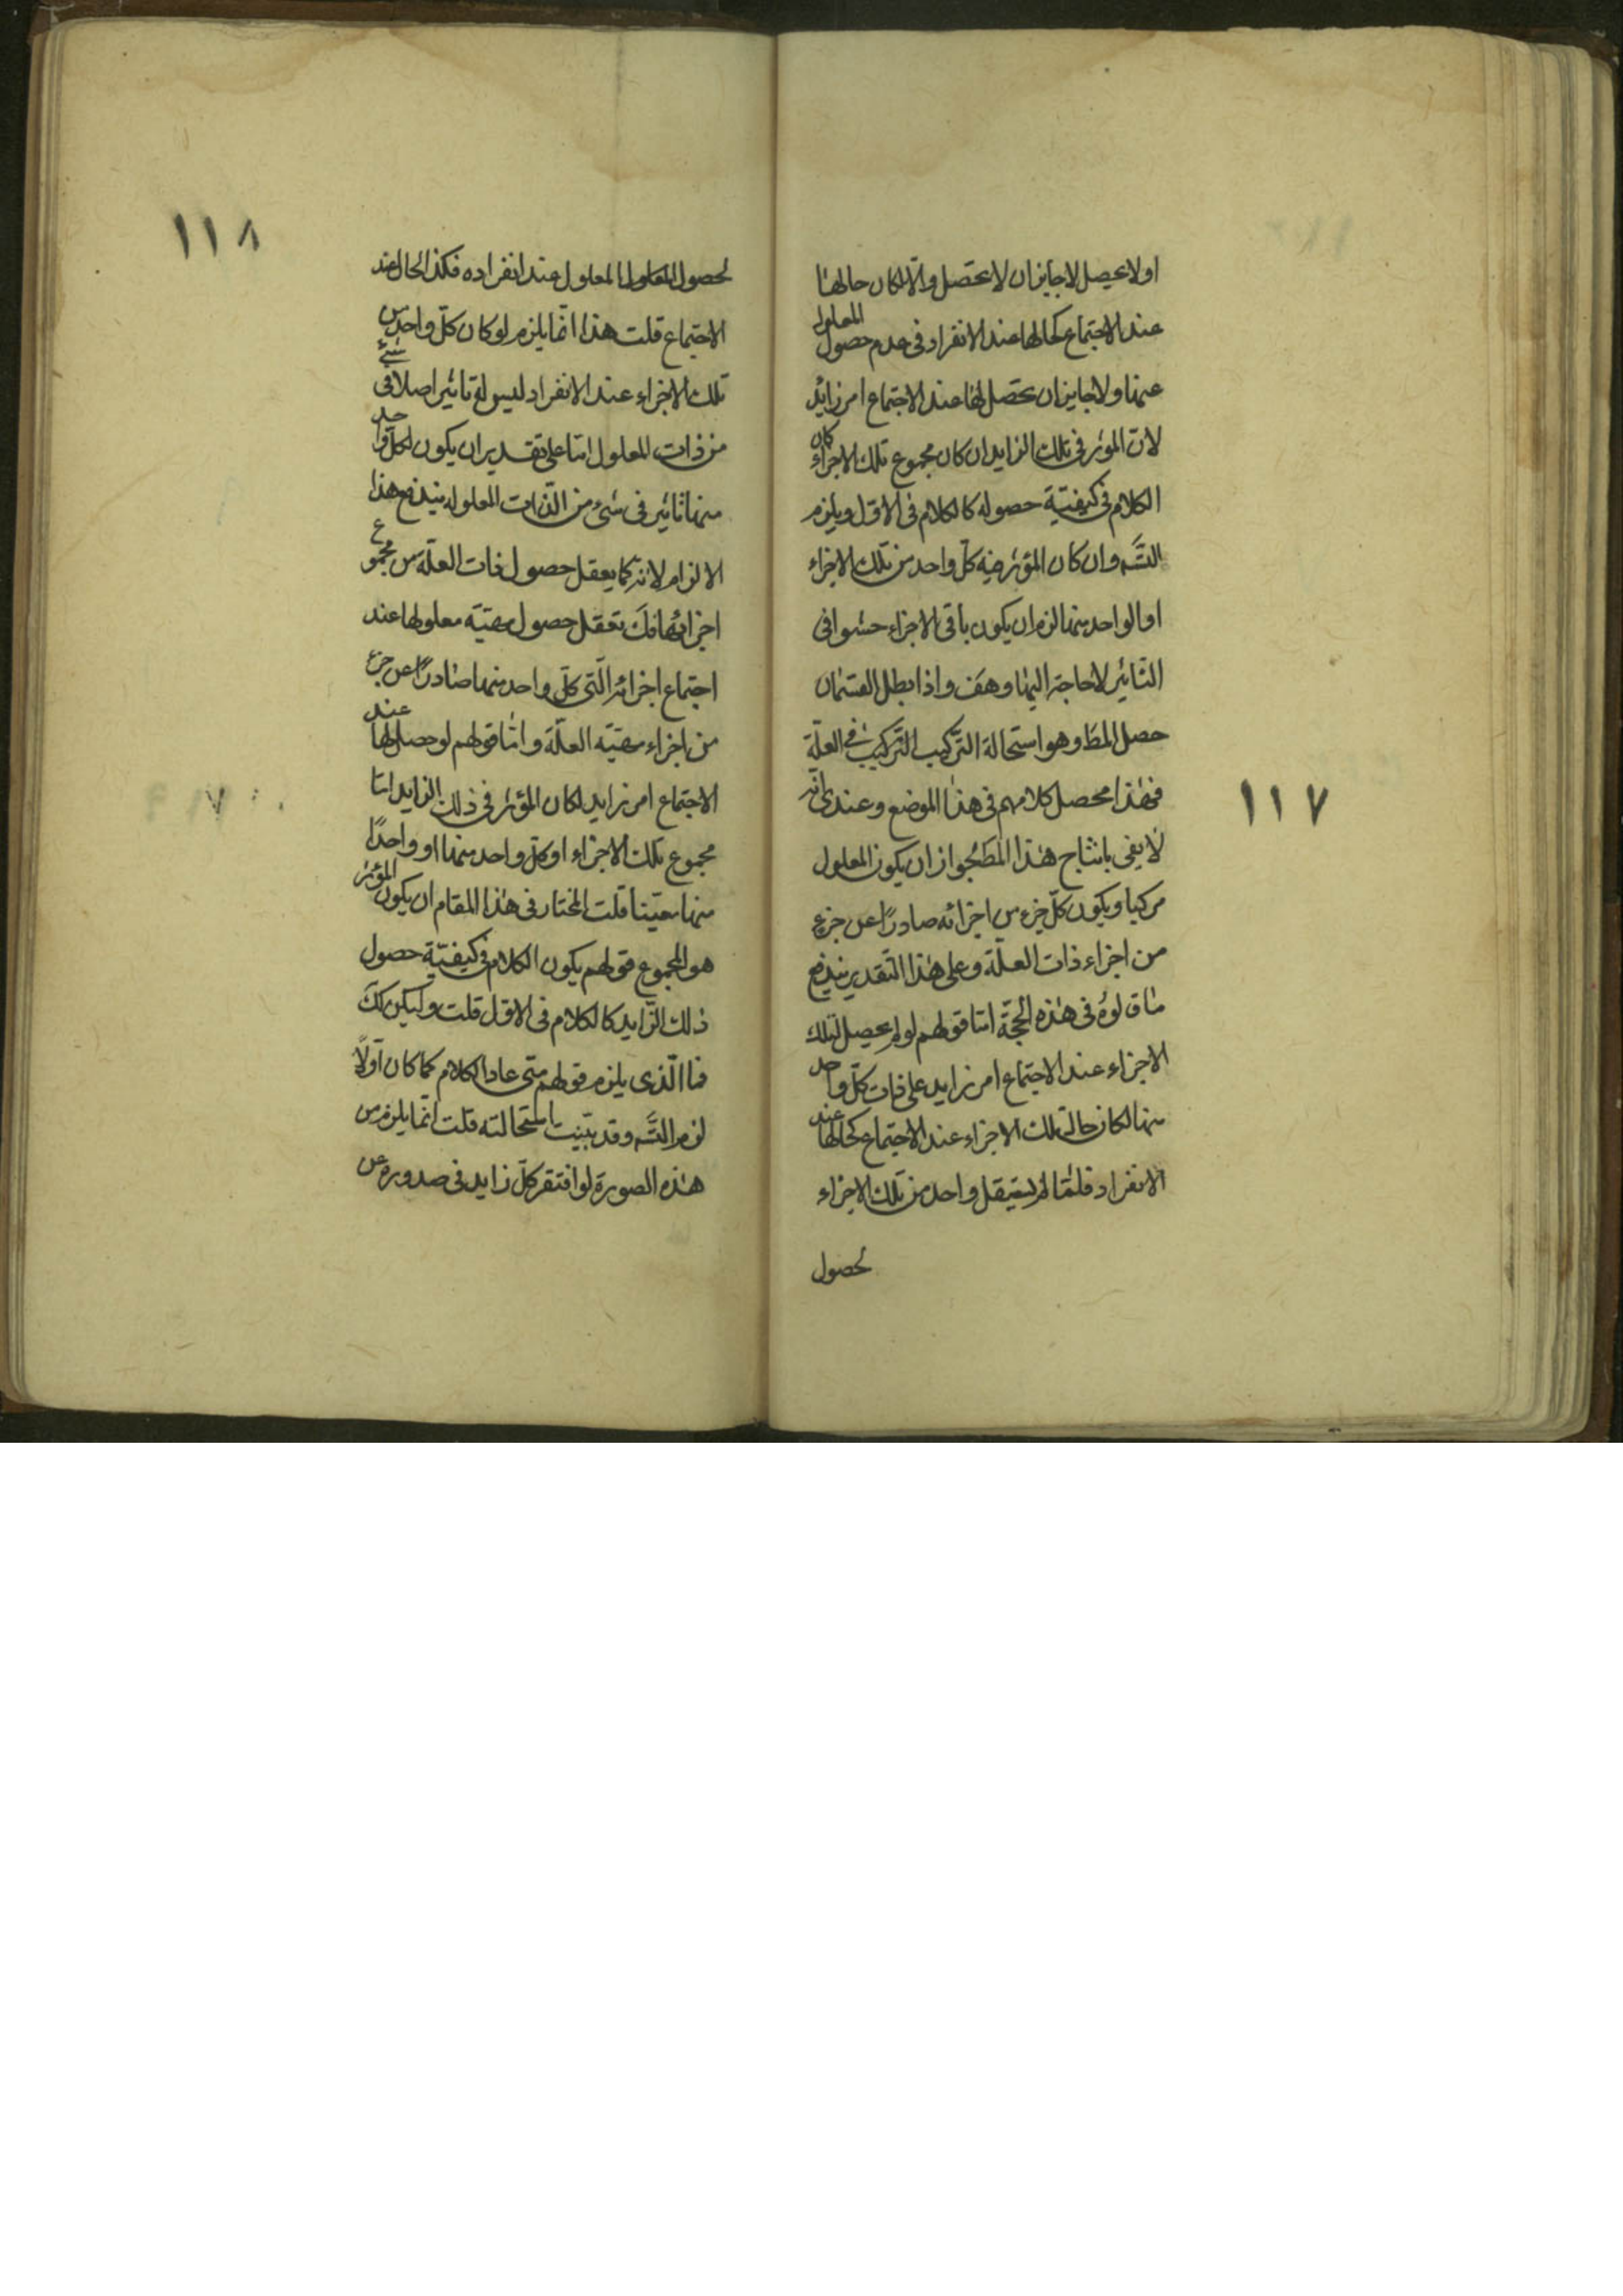 ١١٧
اولا يحصل لا جايز ان لا يحصل والا لكان حالها
عند الاجتماع كحالها عند الانفراد فى عدم حصول المعلول
عنها ولا جايز ان يحصل لها عند الاجتماع امر زايد
لان الموثر فى تلك الزايد ان كان مجموع تلك الاجزاء كان
الكلام فى كيفيّة حصوله كالكلام فى الاوّل ويلزم
التَّسَ وان كان المؤثر فيه كلّ واحد من تلك الاجزاء
او الواحد منها لزم ان يكون باقى الاجزاء حشوا فى
التاثير لا حاجة اليها وهف واذا بطل القسمان
حصل المط وهو استحالة التركيب التركيب فى العلّة
فهذا محصل كلامهم فى هذا الموضع وعندى انّه
لا يفى بانتاج هذا المط لجواز ان يكون المعلول
مركبا ويكون كلّ جزء من اجزائه صادرًا عن جزء
من اجزاء ذات العلّة وعلى هذا التقدير يندفع
ما قالوه فى هذه الحجّة امّا قولهم لو لم يحصل لتلك
الاجزاء عند الاجتماع امر زايد على ذات كلّ واحد
منها لكان حالة تلك الاجزاء عند الاجتماع كحالها عند
الانفراد فلمّا لم يستقل واحد من تلك الاجزاء
لحصول
١١٨
لحصول المعلول المعلول عند انفراده فكذا الحال عند
الاجتماع قلت هذا انّما يلزم لو كان كلّ واحد من
تلك الاجزاء عند الانفراد ليس له تاثير اصلا فى شىء
من ذات المعلول امّا على تقدير ان يكون لكلّ واحد
منها تاثير فى شىء من الذّات المعلوله يندفع هذا
الالزام لانّه كما يعقل حصول ذات العلّة من مجموع
اجزائها فكَ نعقل حصول مهيّة معلولها عند
اجتماع اجزائه الّتى كلّ واحد منها صادرًا عن جزء
من اجزاء مهيّة العلّة وامّا قولهم لو حصل لها عند
الاجتماع امر زايد لكان المؤثر فى ذلك الزايد امّا
مجموع تلك الاجزاء او كلّ واحد منها او واحدًا
منها معيّنا قلت المختار فى هذا المقام ان يكون المؤثر
هو المجموع قولهم يكون الكلام فى كيفيّة حصول
ذلك الزّايد كالكلام فى الاوّل قلت وليكن ككَ
فما الّذى يلزم قولهم متى عاد الكلام كما كان اوّلًا
لزم التَّسَ وقد تبيّنت استحالته قلت انّما يلزم من
هذه الصورة لو افتقر كلّ زايد فى صدوره عن